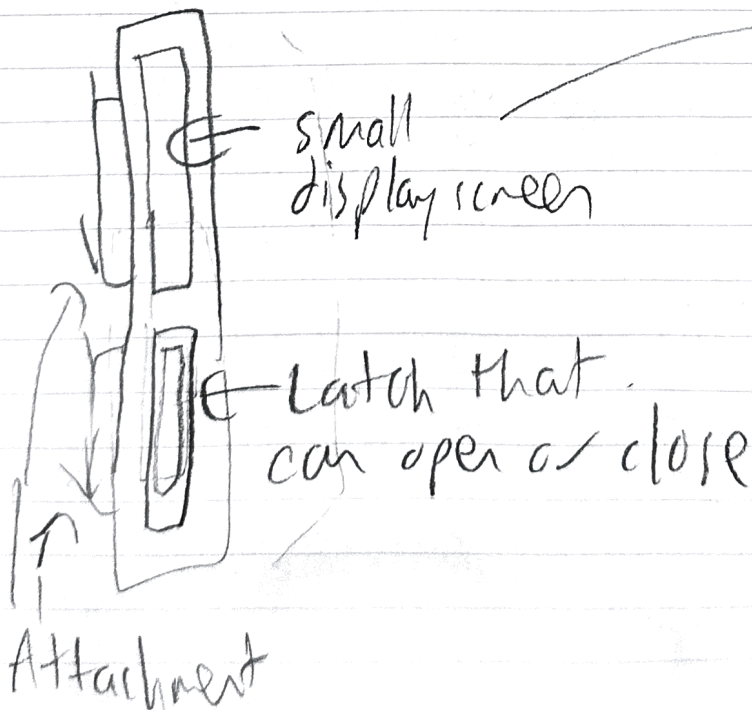 small
display screen
Latch that
can open or close
Attachment